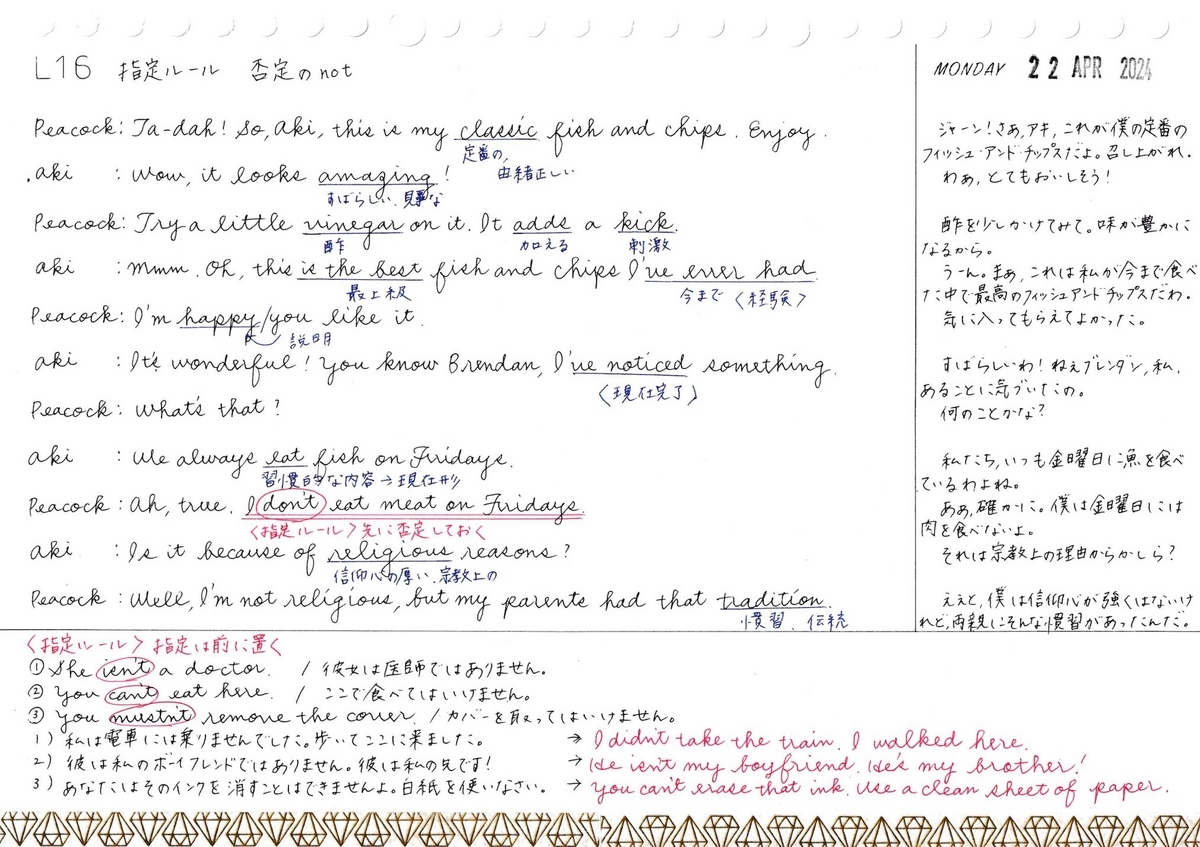 L16 指定ルール 否定のnot
MONDAY 22 APR 2024
Peacock: Ta-dah! So, Aki, this is my classic fish and chips. Enjoy.
定番の, 由緒正しい
aki : Wow, it looks amazing!
すばらしい、見事な
Peacock: Try a little vinegar on it. It adds a kick.
酢 加える 刺激
aki : Mmm. Oh, this is the best fish and chips I've ever had.
最上級 今まで〈経験〉
Peacock: I'm happy/you like it.
説明
aki : It's wonderful! You know Brendan, I've noticed something.
〈現在完了〉
Peacock: What's that?
aki : We always eat fish on Fridays.
習慣的な内容→現在形
Peacock: Ah, true. I don't eat meat on Fridays.
〈指定ルール〉先に否定しておく
aki : Is it because of religious reasons?
信仰心の厚い、宗教上の
Peacock: Well, I'm not religious, but my parents had that tradition.
慣習、伝統
ジャーン!さあ,アキ,これが僕の定番の
フィッシュ・アンド・チップスだよ。召し上がれ.
わぁ,とてもおいしそう!
酢を少しかけてみて。味が豊かに
なるから。
うーん。まぁ,これは私が今まで食べ
た中で最高のフィッシュアンドチップスだわ。
気に入ってもらえてよかった。
すばらしいわ!ねぇブレンダン,私,
あることに気づいたの。
何のことかな?
私たち,いつも金曜日に漁を食べ
ているわよね。
ああ,確かに。僕は金曜日には
肉を食べないよ。
それは宗教上の理由からかしら?
ええと,僕は信仰心が強くはないけ
れど,両親にそんな慣習があったんだ。
〈指定ルール〉指定は前に置く
① She isn't a doctor. / 彼女は医師ではありません。
② You can't eat here. / ここで食べてはいけません。
③ You mustn't remove the cover. / カバーを取ってはいけません。
1) 私は電車には乗りませんでした。歩いてここに来ました。 → I didn't take the train. I walked here.
2) 彼は私のボーイフレンドではありません。彼は私の兄です! → He isn't my boyfriend. He's my brother!
3) あなたはそのインクを消すことはできませんよ。白紙を使いなさい。 → You can't erase that ink. Use a clean sheet of paper.